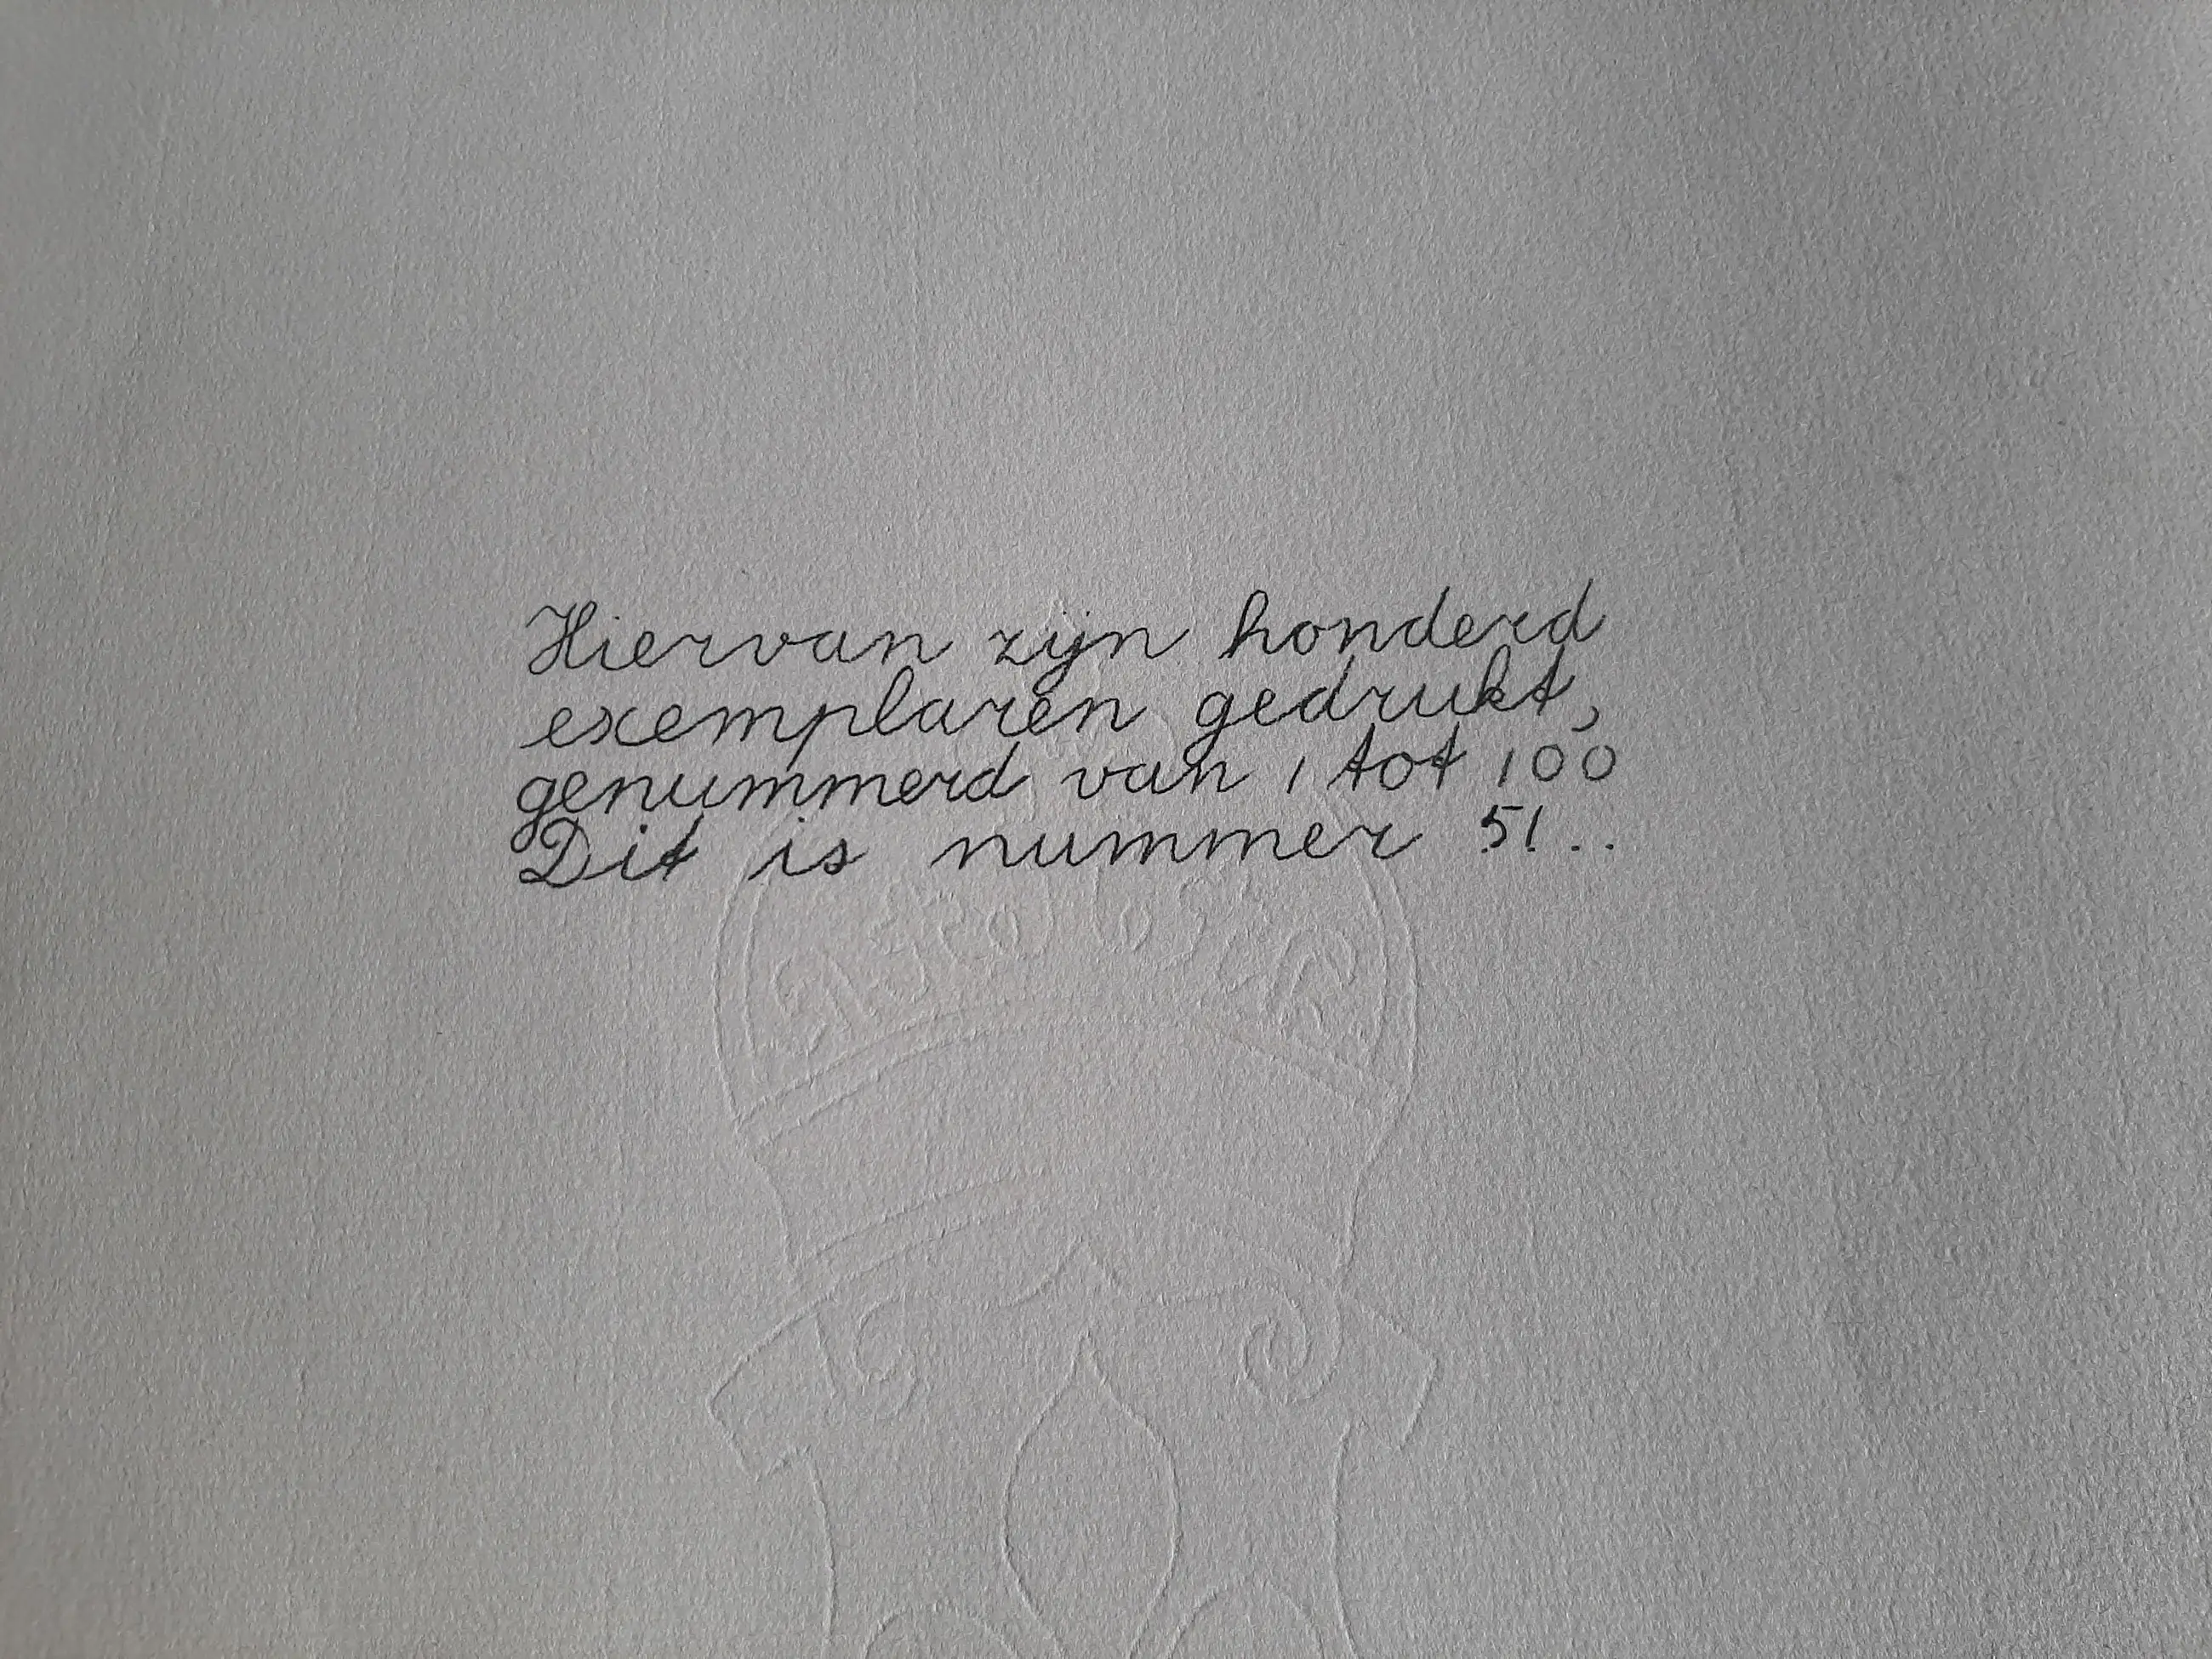 Hiervan zijn honderd
exemplaren gedrukt,
genummerd van 1 tot 100
Dit is nummer 51..